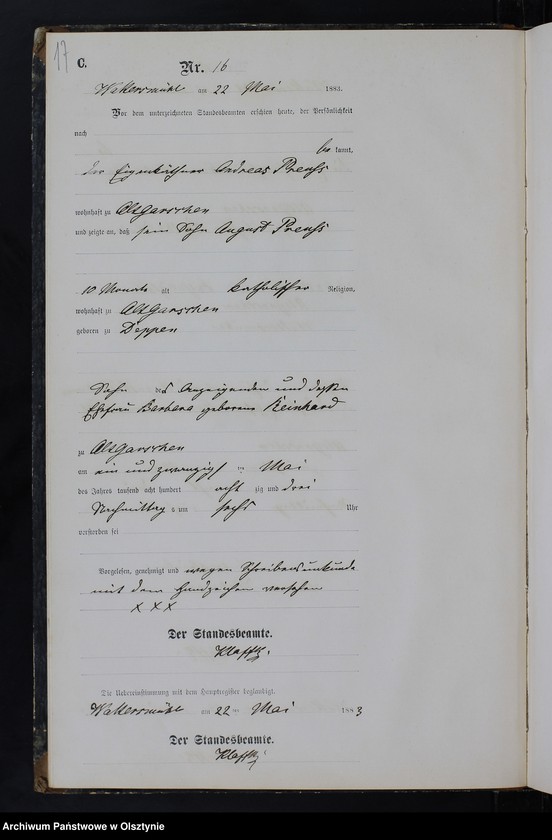 17
C.
Nr. 16
Wallersmühl am 22 Mai 1883.
Vor dem unterzeichneten Standesbeamten erschien heute, der Persönlichkeit
nach
be kannt,
der Eigenkäthner Andreas Preuhs
wohnhaft zu Altgarschen
und zeigte an, daß sein Sohn August Preuhs
10 Monate alt katholischer Religion,
wohnhaft zu Altgarschen
geboren zu Deppen
Sohn des Anzeigenden und dessen
Ehefrau Barbara geborene Reinhard
zu Altgarschen
am ein und zwanzigst en Mai
des Jahres tausend acht hundert acht zig und drei
Nachmittag s um sechs Uhr
verstorben sei
Vorgelesen, genehmigt und wegen Schreibensunkunde
mit dem Handzeichen versehen
x x x
Der Standesbeamte.
Die Uebereinstimmung mit dem Hauptregister beglaubigt.
Wallersmühl am 22 ten Mai 1883
Der Standesbeamte.
Archiwum Państwowe w Olsztynie